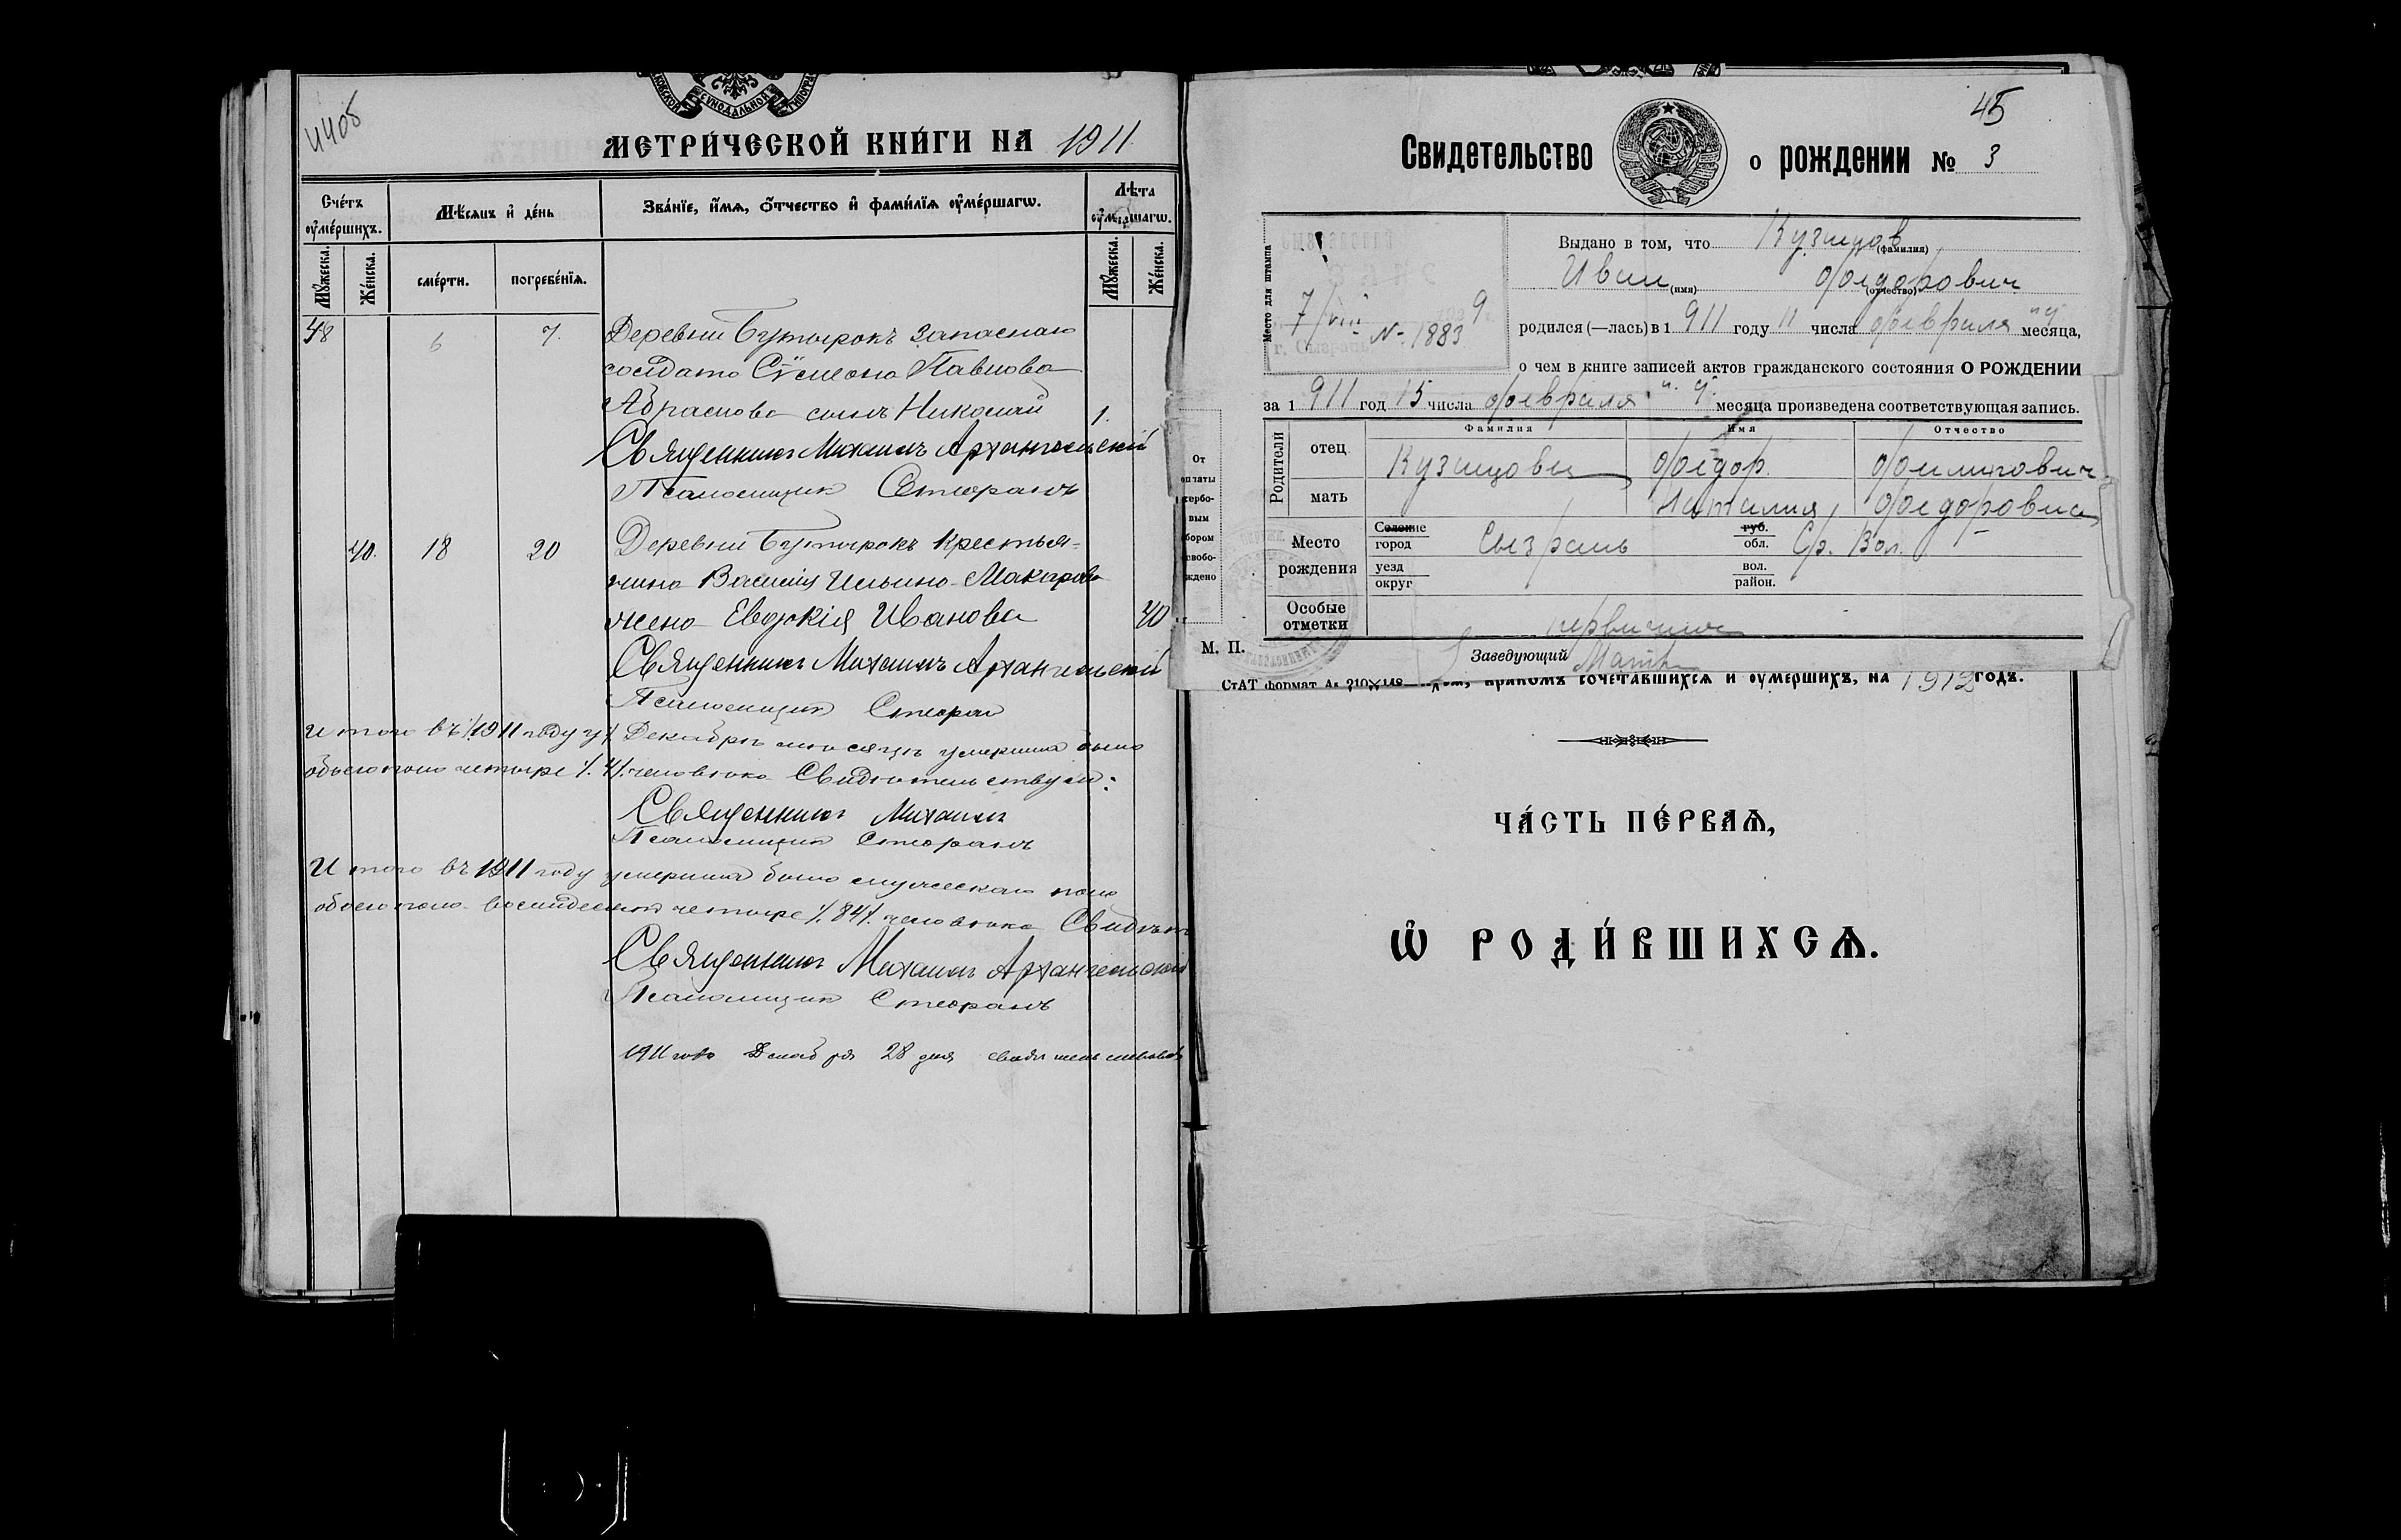 440б
МЕТРИ́ЧЕСКОЙ КНИ́ГИ НА 1911
Сче́тъ ᲂу҆ме́ршихъ.
Мѣ́сяцъ и҆ де́нь
Зва́нїе, и҆́мѧ, ѻ҆́тчество и҆ фами́лїѧ ᲂу҆ме́ршагѡ.
Лѣ́та ᲂу҆ме́ршагѡ.
Мꙋ́жеска.
Же́нска.
сме́рти.
погребе́нїѧ.
Мꙋ́жеска.
Же́нска.
48 6 7. Деревни Бутырокъ запаснаго
солдата Сѵмеона Павлова
Абрамова сынъ Николай 1.
Священникъ Михаилъ Архангельскій
Псаломщик
40. 18 20 Деревни Бутырокъ крестья-
нина Василія Ильина Макарова
жена Евдокія Иванова 40
Священникъ Михаилъ Архангельскій
Псаломщик
Итого въ 1911 году въ Декабрѣ мѣсяцѣ умерших было
обоего пола четыре /.4/. человѣка Свидѣтельствуем:
Священникъ Михаилъ
Псаломщик
Итого въ 1911 году умерших было мужескаго пола
обоего пола восемьдесят четыре /.84/. человѣка
Священникъ Михаилъ Архангельскій
Псаломщик
1911 года Декабря 28 дня
45
Свидетельство о рождении № 3
Место для штампа
7/VIII 9
№ 1883
г. Сызрань
Выдано в том, что Кузнецов
(фамилия)
Иван Федорович
(имя) (отчество)
родился (—лась) в 1911 году 11 числа февраля месяца,
о чем в книге записей актов гражданского состояния О РОЖДЕНИИ
за 1911 год 15 числа февраля месяца произведена соответствующая запись.
Родители
Фамилия Имя Отчество
отец Кузнецовы Федор Филипович
мать Наталия Федоровна
Место рождения
Селение город Сызрань губ. обл. Ср. Вол.
уезд округ вол. район.
Особые отметки первичное
От платы гербо- вым сбором освобо- ждено
М. П.
Заведующий
СтАТ формат А5 210×148
бракомъ сочетавшихсѧ и ᲂумершихъ, на 1912 годъ.
ЧА́СТЬ ПЕ́РВАѦ,
Ѽ РОДИ́ВШИХСѦ.